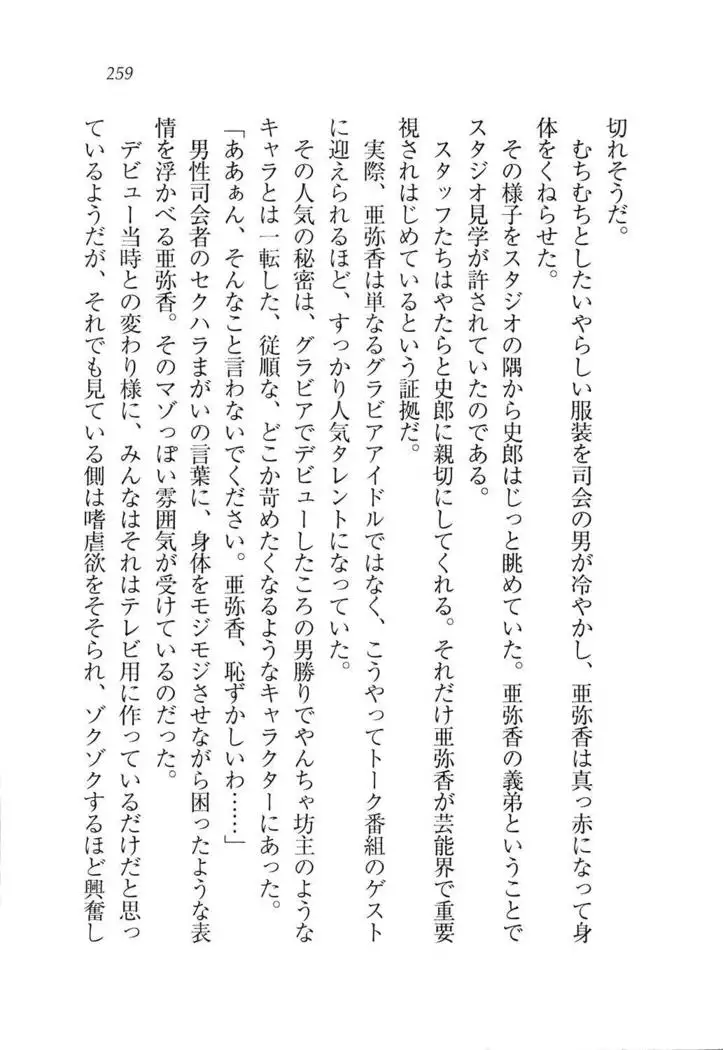 259
切れそうだ。
　むちむちとしたいやらしい服装を司会の男が冷やかし、亜弥香は真っ赤になって身
体をくねらせた。
　その様子をスタジオの隅から史郎はじっと眺めていた。亜弥香の義弟ということで
スタジオ見学が許されていたのである。
　スタッフたちはやたらと史郎に親切にしてくれる。それだけ亜弥香が芸能界で重要
視されはじめているという証拠だ。
　実際、亜弥香は単なるグラビアアイドルではなく、こうやってトーク番組のゲスト
に迎えられるほど、すっかり人気タレントになっていた。
　その人気の秘密は、グラビアでデビューしたころの男勝りでやんちゃ坊主のような
キャラとは一転した、従順な、どこか苛めたくなるようなキャラクターにあった。
「ああぁん、そんなこと言わないでください。亜弥香、恥ずかしいわ……」
　男性司会者のセクハラまがいの言葉に、身体をモジモジさせながら困ったような表
情を浮かべる亜弥香。そのマゾっぽい雰囲気が受けているのだった。
　デビュー当時との変わり様に、みんなはそれはテレビ用に作っているだけだと思っ
ているようだが、それでも見ている側は嗜虐欲をそそられ、ゾクゾクするほど興奮し